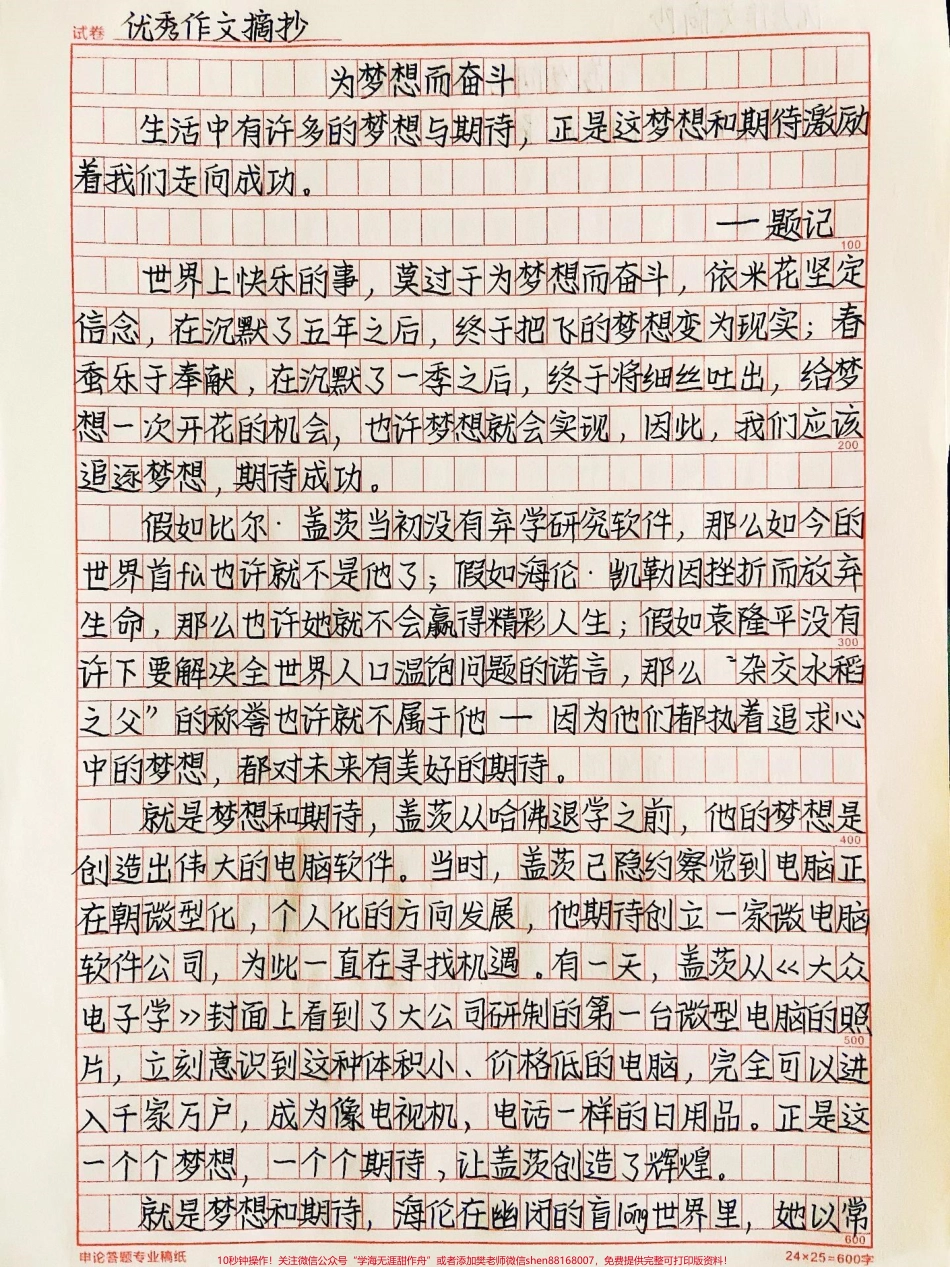 试卷 优秀作文摘抄
为梦想而奋斗
生活中有许多的梦想与期待，正是这梦想和期待激励
着我们走向成功。
—题记
100
世界上快乐的事，莫过于为梦想而奋斗，依米花坚定
信念，在沉默了五年之后，终于把飞的梦想变为现实；春
蚕乐于奉献，在沉默了一季之后，终于将细丝吐出，给梦
想一次开花的机会，也许梦想就会实现，因此，我们应该
200
追逐梦想，期待成功。
假如比尔·盖茨当初没有弃学研究软件，那么如今的
世界首fù也许就不是他了；假如海伦·凯勒因挫折而放弃
生命，那么也许她就不会赢得精彩人生；假如袁隆平没有
300
许下要解决全世界人口温饱问题的诺言，那么“杂交水稻
之父”的称誉也许就不属于他—因为他们都执着追求心
中的梦想，都对未来有美好的期待。
就是梦想和期待，盖茨从哈佛退学之前，他的梦想是
400
创造出伟大的电脑软件。当时，盖茨已隐约察觉到电脑正
在朝微型化，个人化的方向发展，他期待创立一家微电脑
软件公司，为此一直在寻找机遇。有一天，盖茨从《大众
电子学》封面上看到了大公司研制的第一台微型电脑的照
500
片，立刻意识到这种体积小、价格低的电脑，完全可以进
入千家万户，成为像电视机，电话一样的日用品。正是这
一个个梦想，一个个期待，让盖茨创造了辉煌。
就是梦想和期待，海伦在幽闭的盲lóng世界里，她以常
600
申论答题专业稿纸 24×25=600字
10秒钟操作！关注微信公众号“学海无涯甜作舟”或者添加樊老师微信shen88168007，免费提供完整可打印版资料！